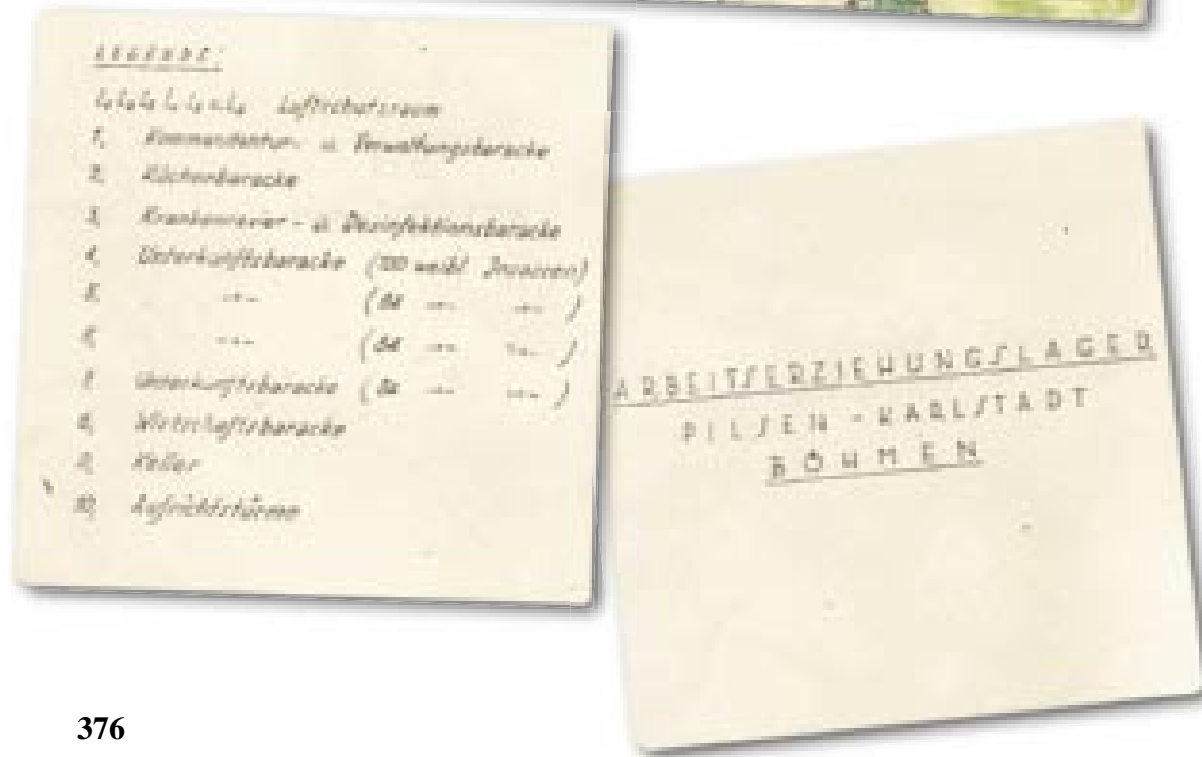 LEGENDE:
Luftschutzraum
1, Kommandantur- u. Verwaltungsbaracke
2, Küchenbaracke
3, Krankenrevier- u. Desinfektionsbaracke
4, Unterkunftsbaracke (100 weibl. Insassen)
5, -"- ( -"- -"- )
6, -"- ( -"- -"- )
7, Unterkunftsbaracke ( -"- -"- )
8, Wirtschaftsbaracke
9, Keller
10,
ARBEITSERZIEHUNGSLAGER
PILSEN - KARLSTADT
BÖHMEN
376